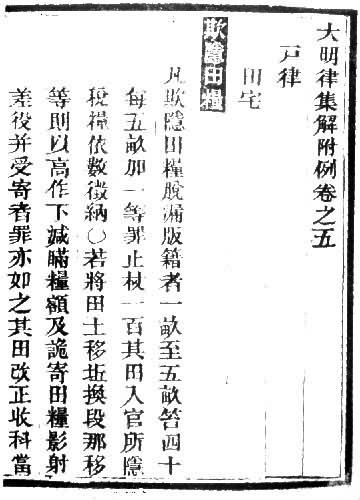 大明律集解附例卷之五
戸律
田宅
欺隱田糧
凡欺隱田糧脫漏版籍者一畝至五畝笞四十
每五畝加一等罪止杖一百其田入官所隱
稅糧依數徵納○若將田土移坵換段那移
等則以高作下減瞞糧額及詭寄田糧影射
差役并受寄者罪亦如之其田改正收科當